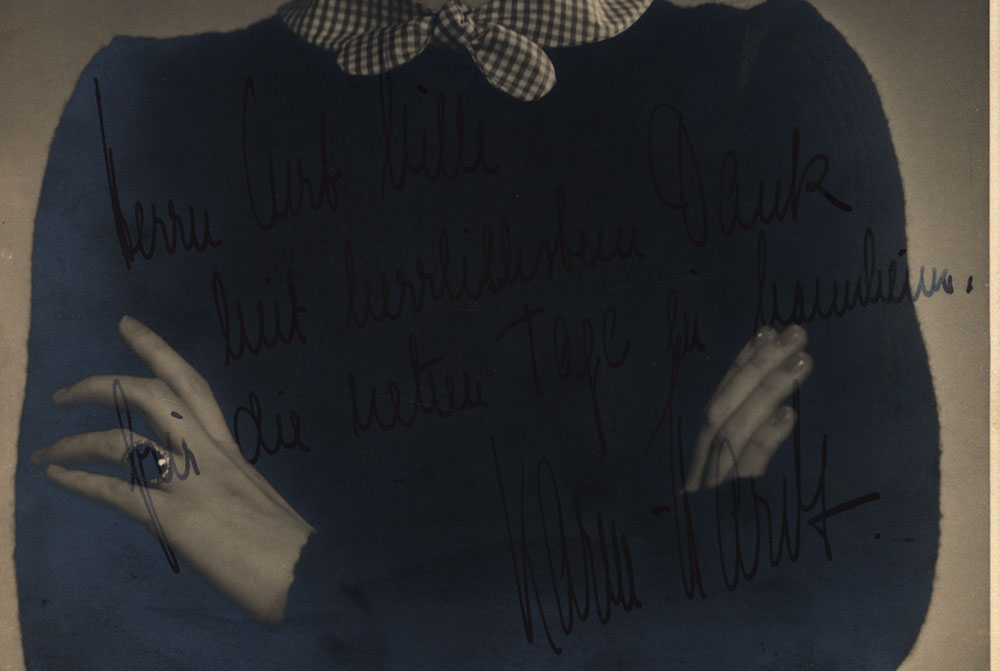 Herrn Curt Wille
mit herzlichstem Dank
für die netten Tage in Mannheim.
Karin Hardt.